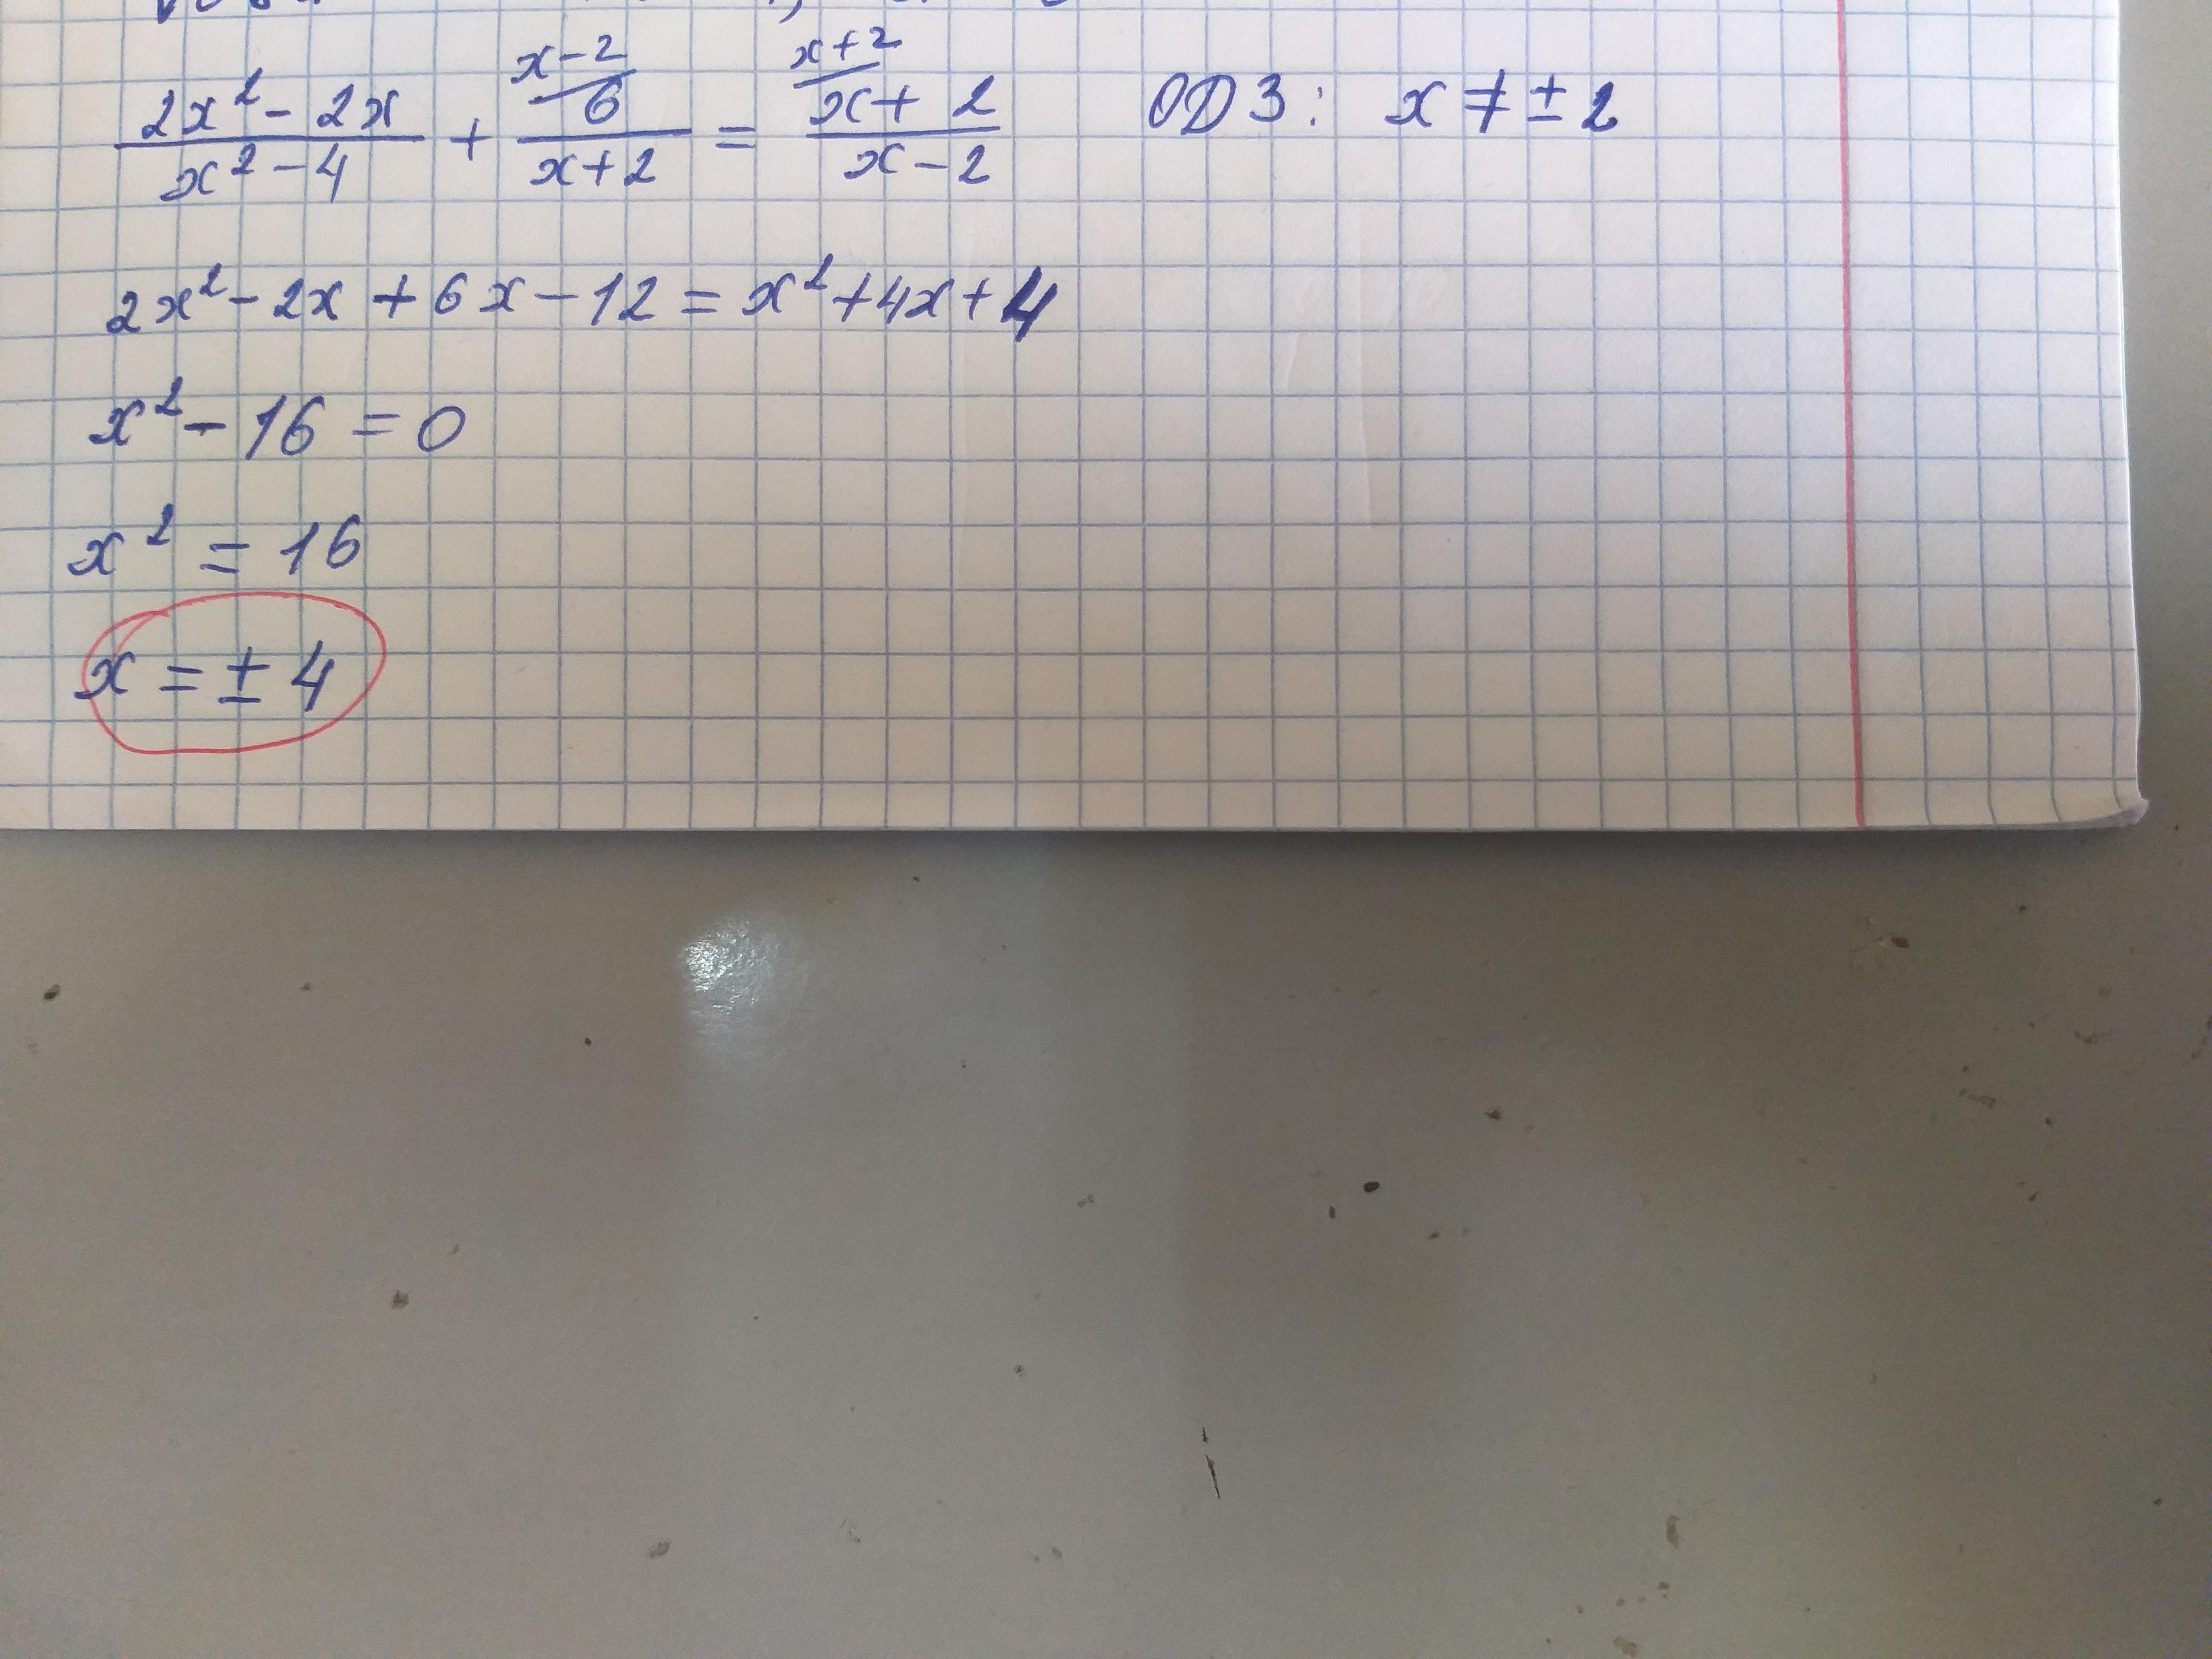 (2x² - 2x)/(x² - 4) + (x-2/ 6)/(x+2) = (x+2/ x+2)/(x-2) ОДЗ: x ≠ ± 2
2x² - 2x + 6x - 12 = x² + 4x + 4
x² - 16 = 0
x² = 16
x = ± 4